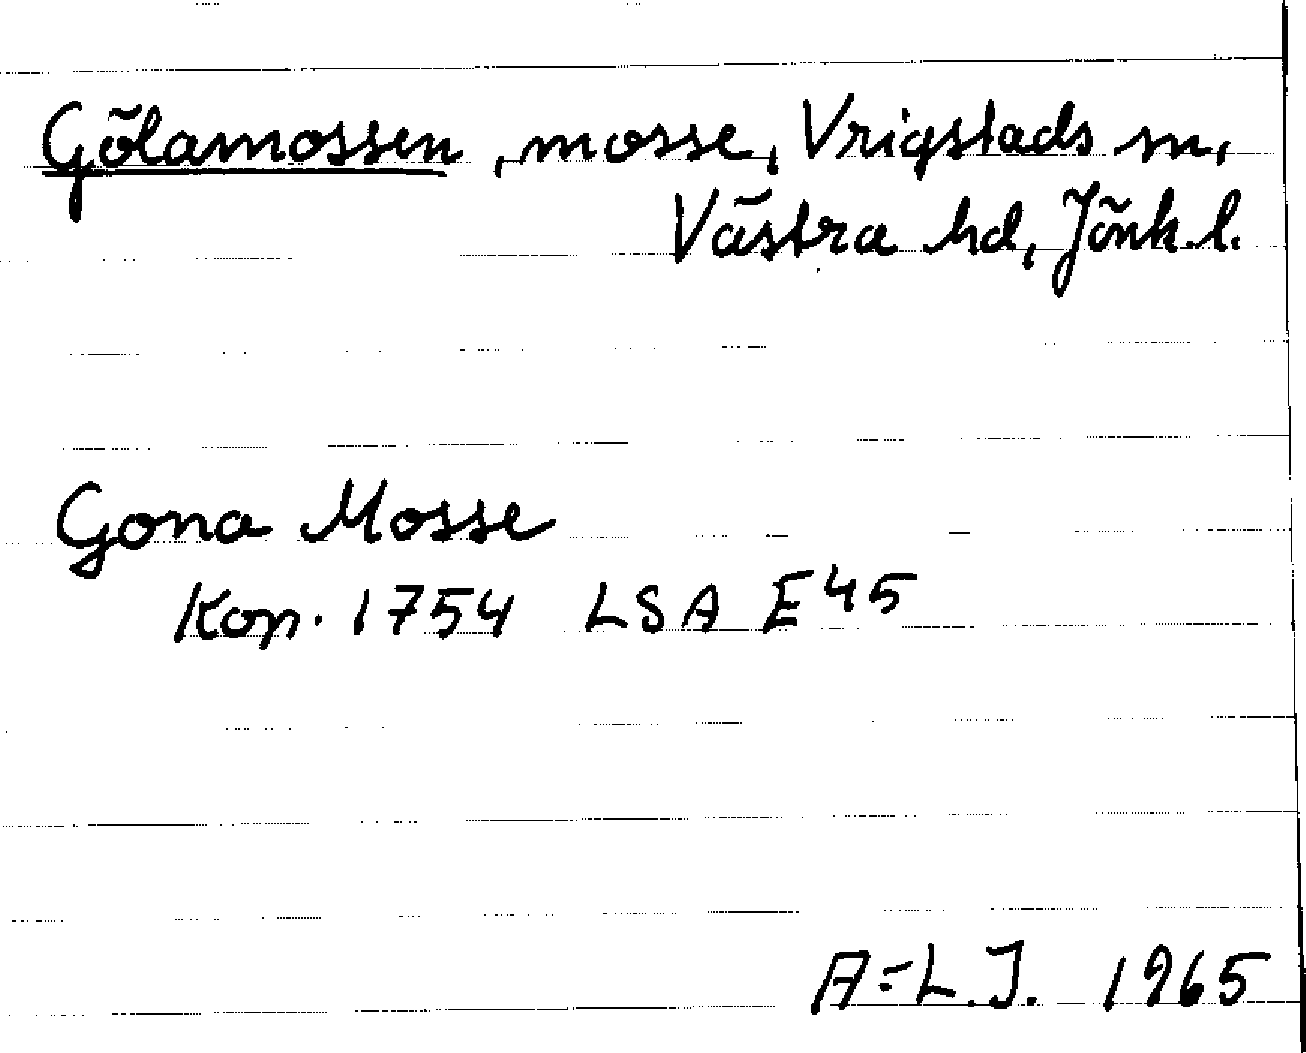 Gölamossen, mosse, Vrigstads sn,
Västra hd, Jönk. l.
Gona Mosse
Kop. 1754 LSA E45
A-L.J. 1965